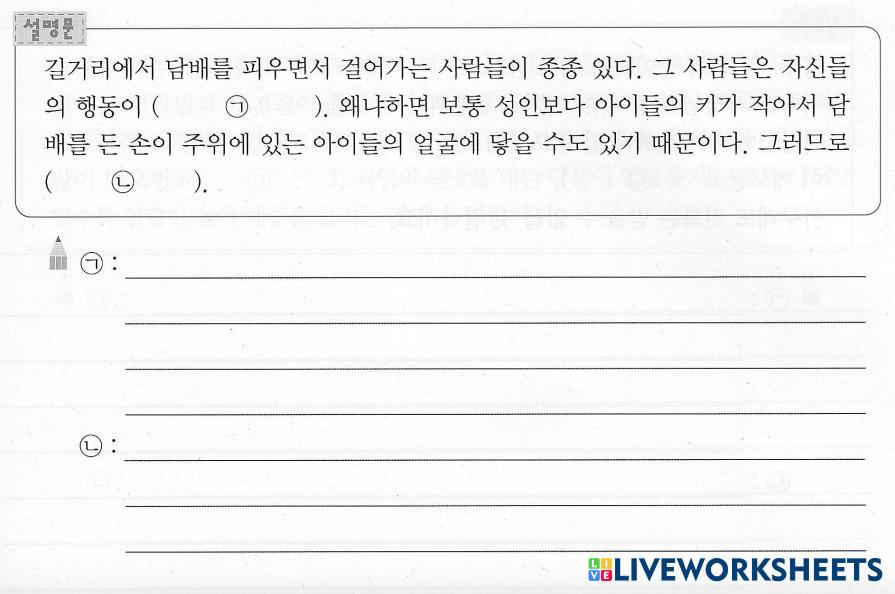 설명문
길거리에서 담배를 피우면서 걸어가는 사람들이 종종 있다. 그 사람들은 자신들
의 행동이 ( ㉠ ). 왜냐하면 보통 성인보다 아이들의 키가 작아서 담
배를 든 손이 주위에 있는 아이들의 얼굴에 닿을 수도 있기 때문이다. 그러므로
( ㉡ ).
㉠ :
㉡ :
LIVE LIVEWORKSHEETS